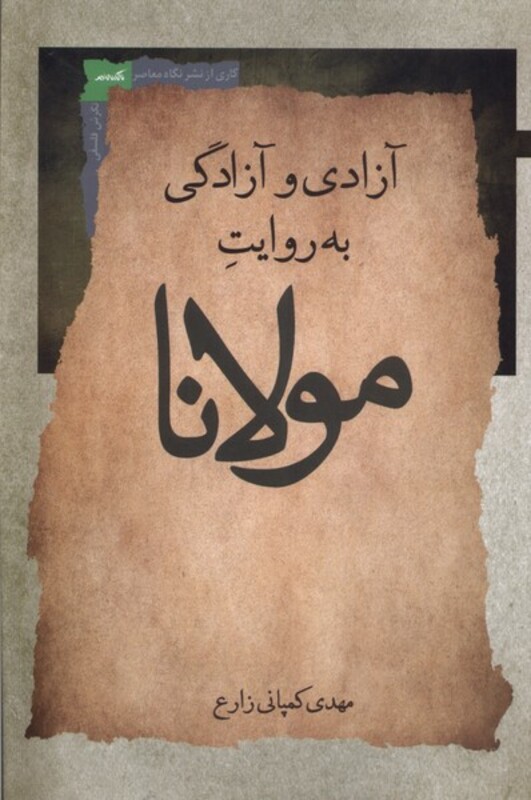 کاری از نشر نگاه معاصر
نگرش فلسفی
آزادی و آزادگی
به روایتِ
مولانا
مهدی کمپانی زارع